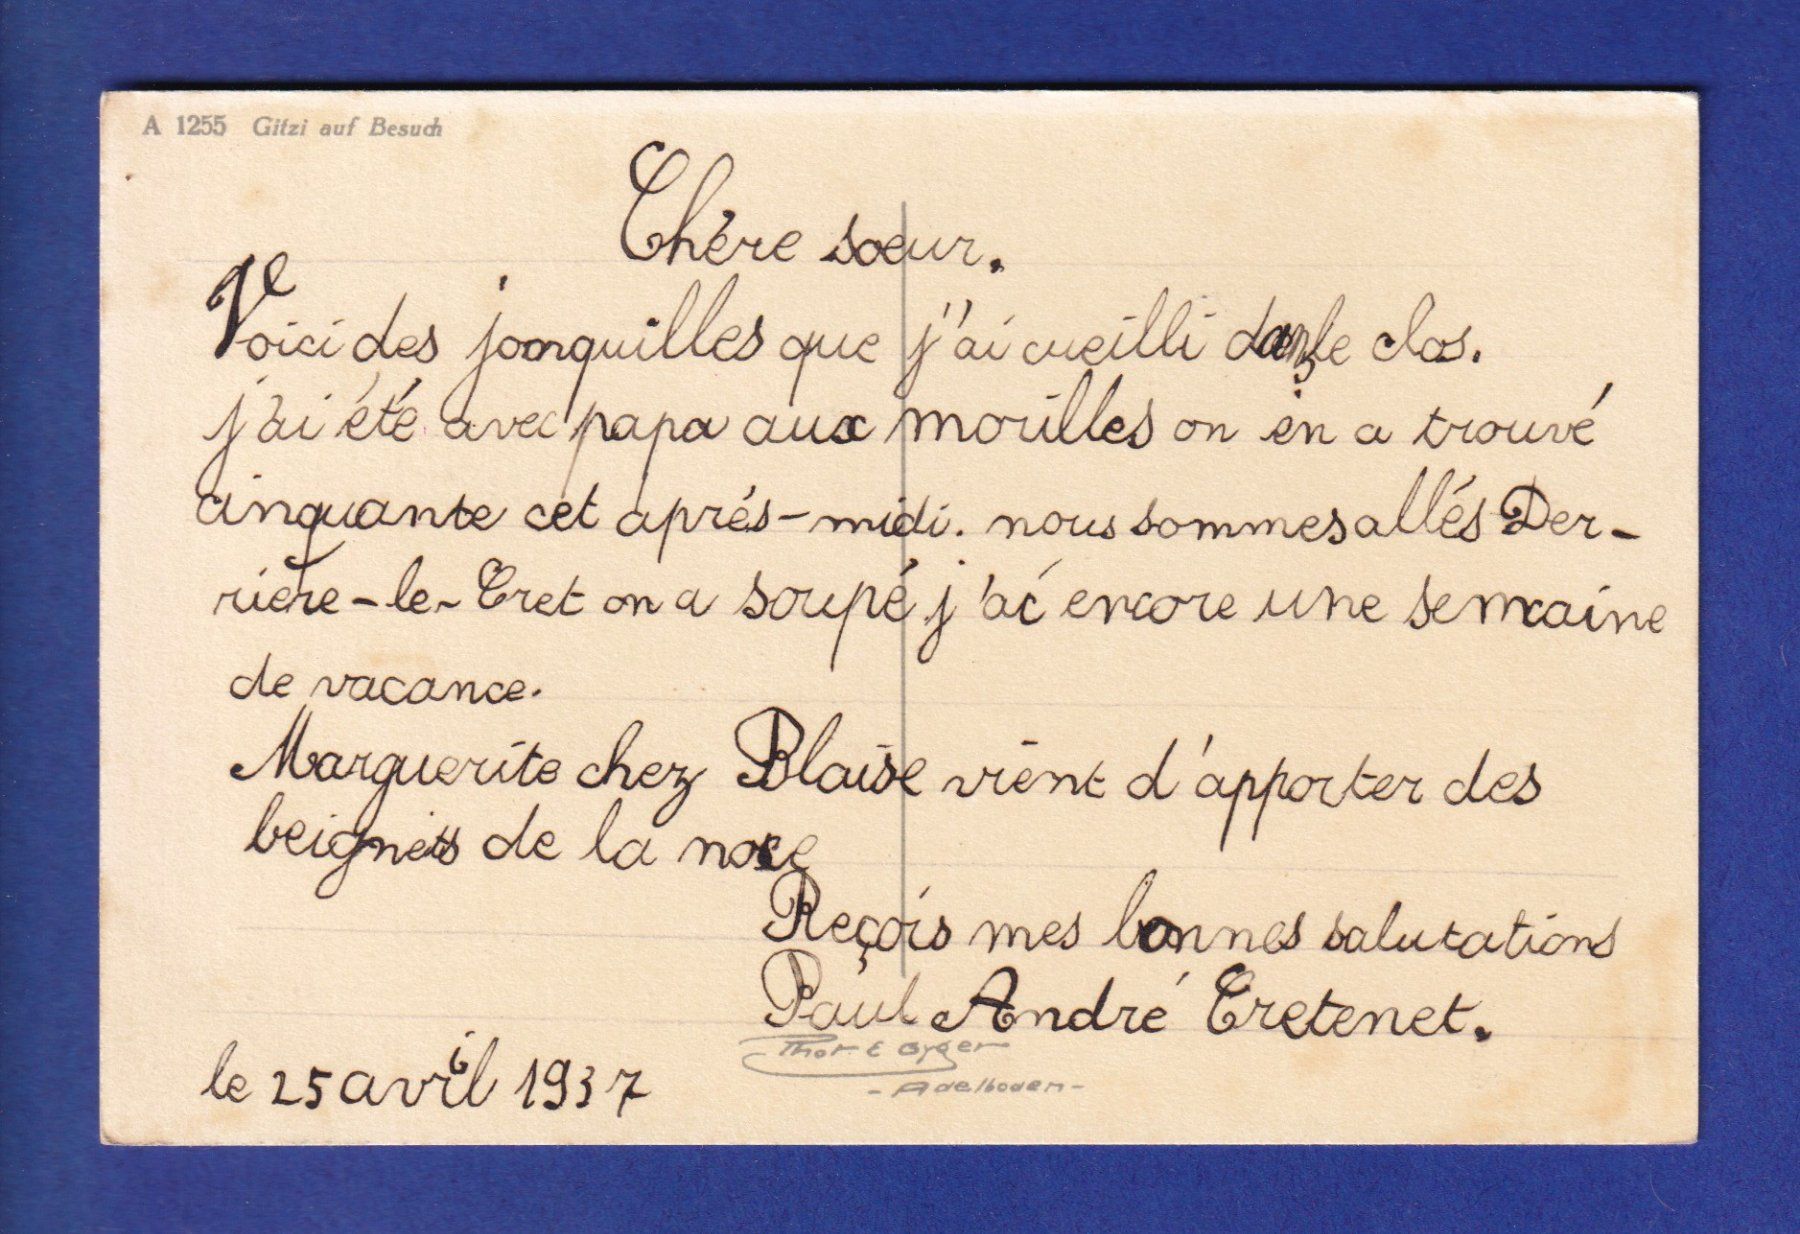 A 1255 Gitzi auf Besuch
Chère sœur.
Voici des jonquilles que j'ai cueilli dans le clos.
j'ai été avec papa aux morilles on en a trouvé
cinquante cet après-midi. nous sommes allés Der-
rière-le-Cret on a soupé j'ai encore une semaine
de vacance.
Marguerite chez Blaise vient d'apporter des
beignets de la noce
Reçois mes bonnes salutations
Paul André Cretenet.
Phot E Gyger
- Adelboden -
le 25 avril 1937